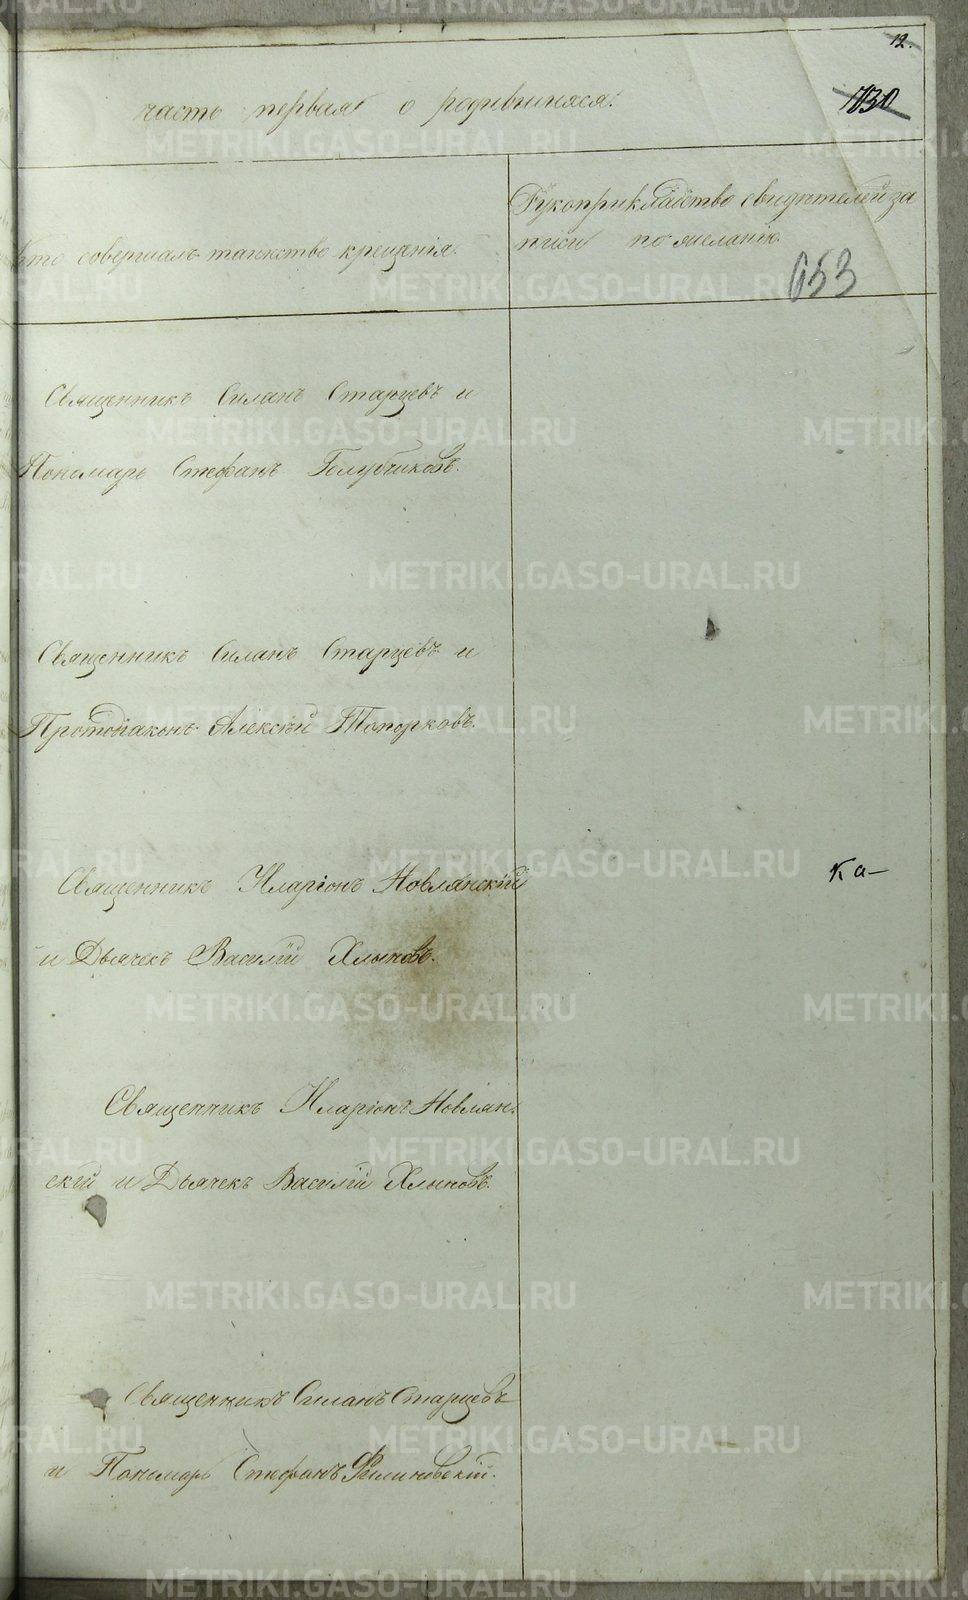 12.
часть первая о родившихся.
1030
Кто совершалъ таинство крещенія.
Рукоприкладство свидѣтелей за
писи по желанію.
653
Священникъ Силанъ Старцевъ и
Пономарь Стефанъ Голубчиковъ.
Священникъ Силанъ Старцевъ и
Протодіаконъ Алексѣй Топорковъ.
Священникъ Иларіонъ Новлянскій
Ка-
и Дьячекъ Василій Хлыновъ.
Священникъ Иларіонъ Новлян-
скій и Дьячекъ Василій Хлыновъ.
Священникъ Силанъ Старцевъ
и Пономарь Стефанъ Филиновскій.
METRIKI.GASO-URAL.RU